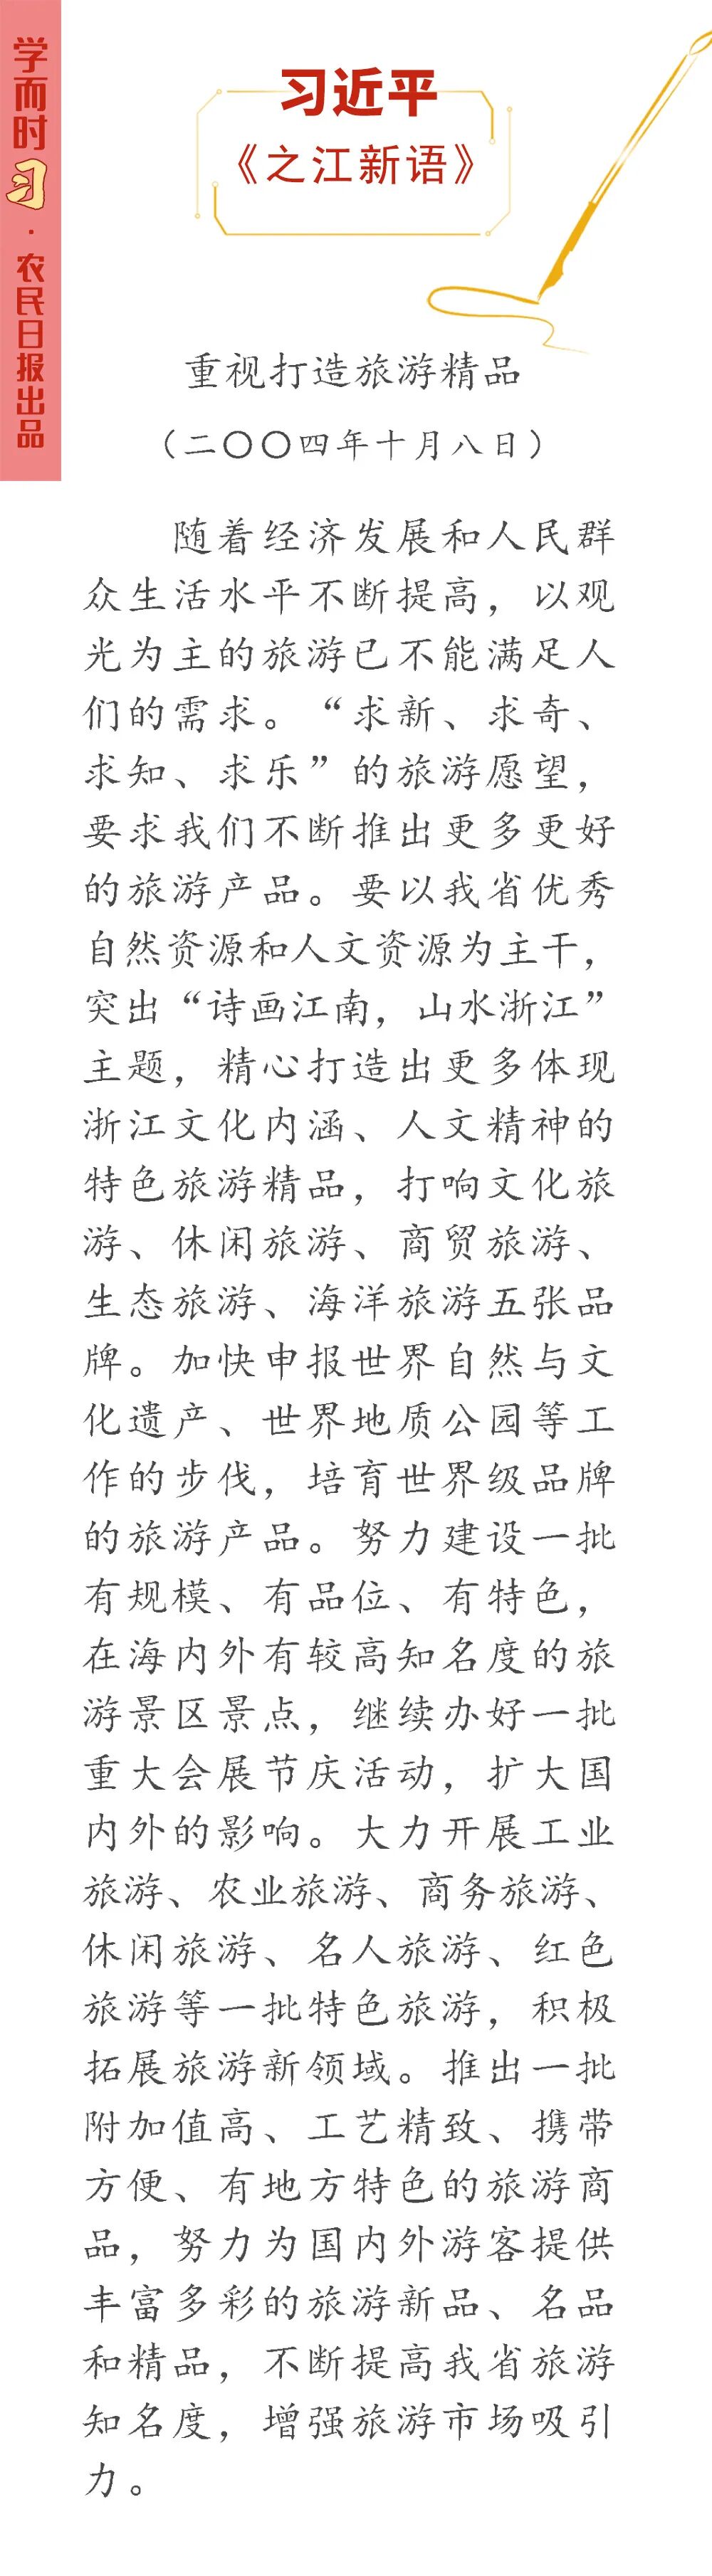 学而时习·农民日报出品
习近平
《之江新语》
重视打造旅游精品
（二〇〇四年十月八日）
随着经济发展和人民群
众生活水平不断提高，以观
光为主的旅游已不能满足人
们的需求。“求新、求奇、
求知、求乐”的旅游愿望，
要求我们不断推出更多更好
的旅游产品。要以我省优秀
自然资源和人文资源为主干，
突出“诗画江南，山水浙江”
主题，精心打造出更多体现
浙江文化内涵、人文精神的
特色旅游精品，打响文化旅
游、休闲旅游、商贸旅游、
生态旅游、海洋旅游五张品
牌。加快申报世界自然与文
化遗产、世界地质公园等工
作的步伐，培育世界级品牌
的旅游产品。努力建设一批
有规模、有品位、有特色，
在海内外有较高知名度的旅
游景区景点，继续办好一批
重大会展节庆活动，扩大国
内外的影响。大力开展工业
旅游、农业旅游、商务旅游、
休闲旅游、名人旅游、红色
旅游等一批特色旅游，积极
拓展旅游新领域。推出一批
附加值高、工艺精致、携带
方便、有地方特色的旅游商
品，努力为国内外游客提供
丰富多彩的旅游新品、名品
和精品，不断提高我省旅游
知名度，增强旅游市场吸引
力。